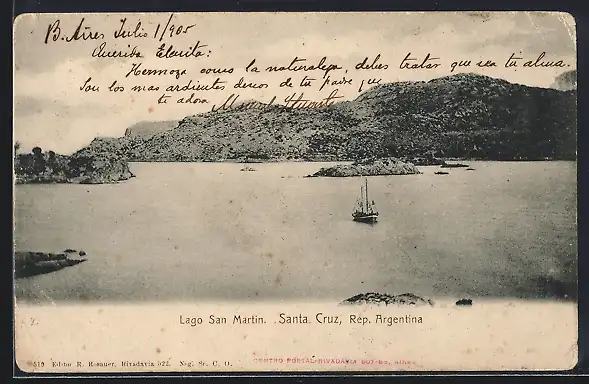 B. Aires Julio 1/905
Querida Elenita:
Hermoza como la naturaleza, debes tratar que sea tu alma.
Son los mas ardientes deseos de tu padre que
te adora Manuel
Lago San Martin. Santa Cruz, Rep. Argentina
519 Editor R. Rosauer, Rivadavia 522. Neg. Sr. C. O.
CENTRO POSTAL-RIVADAVIA